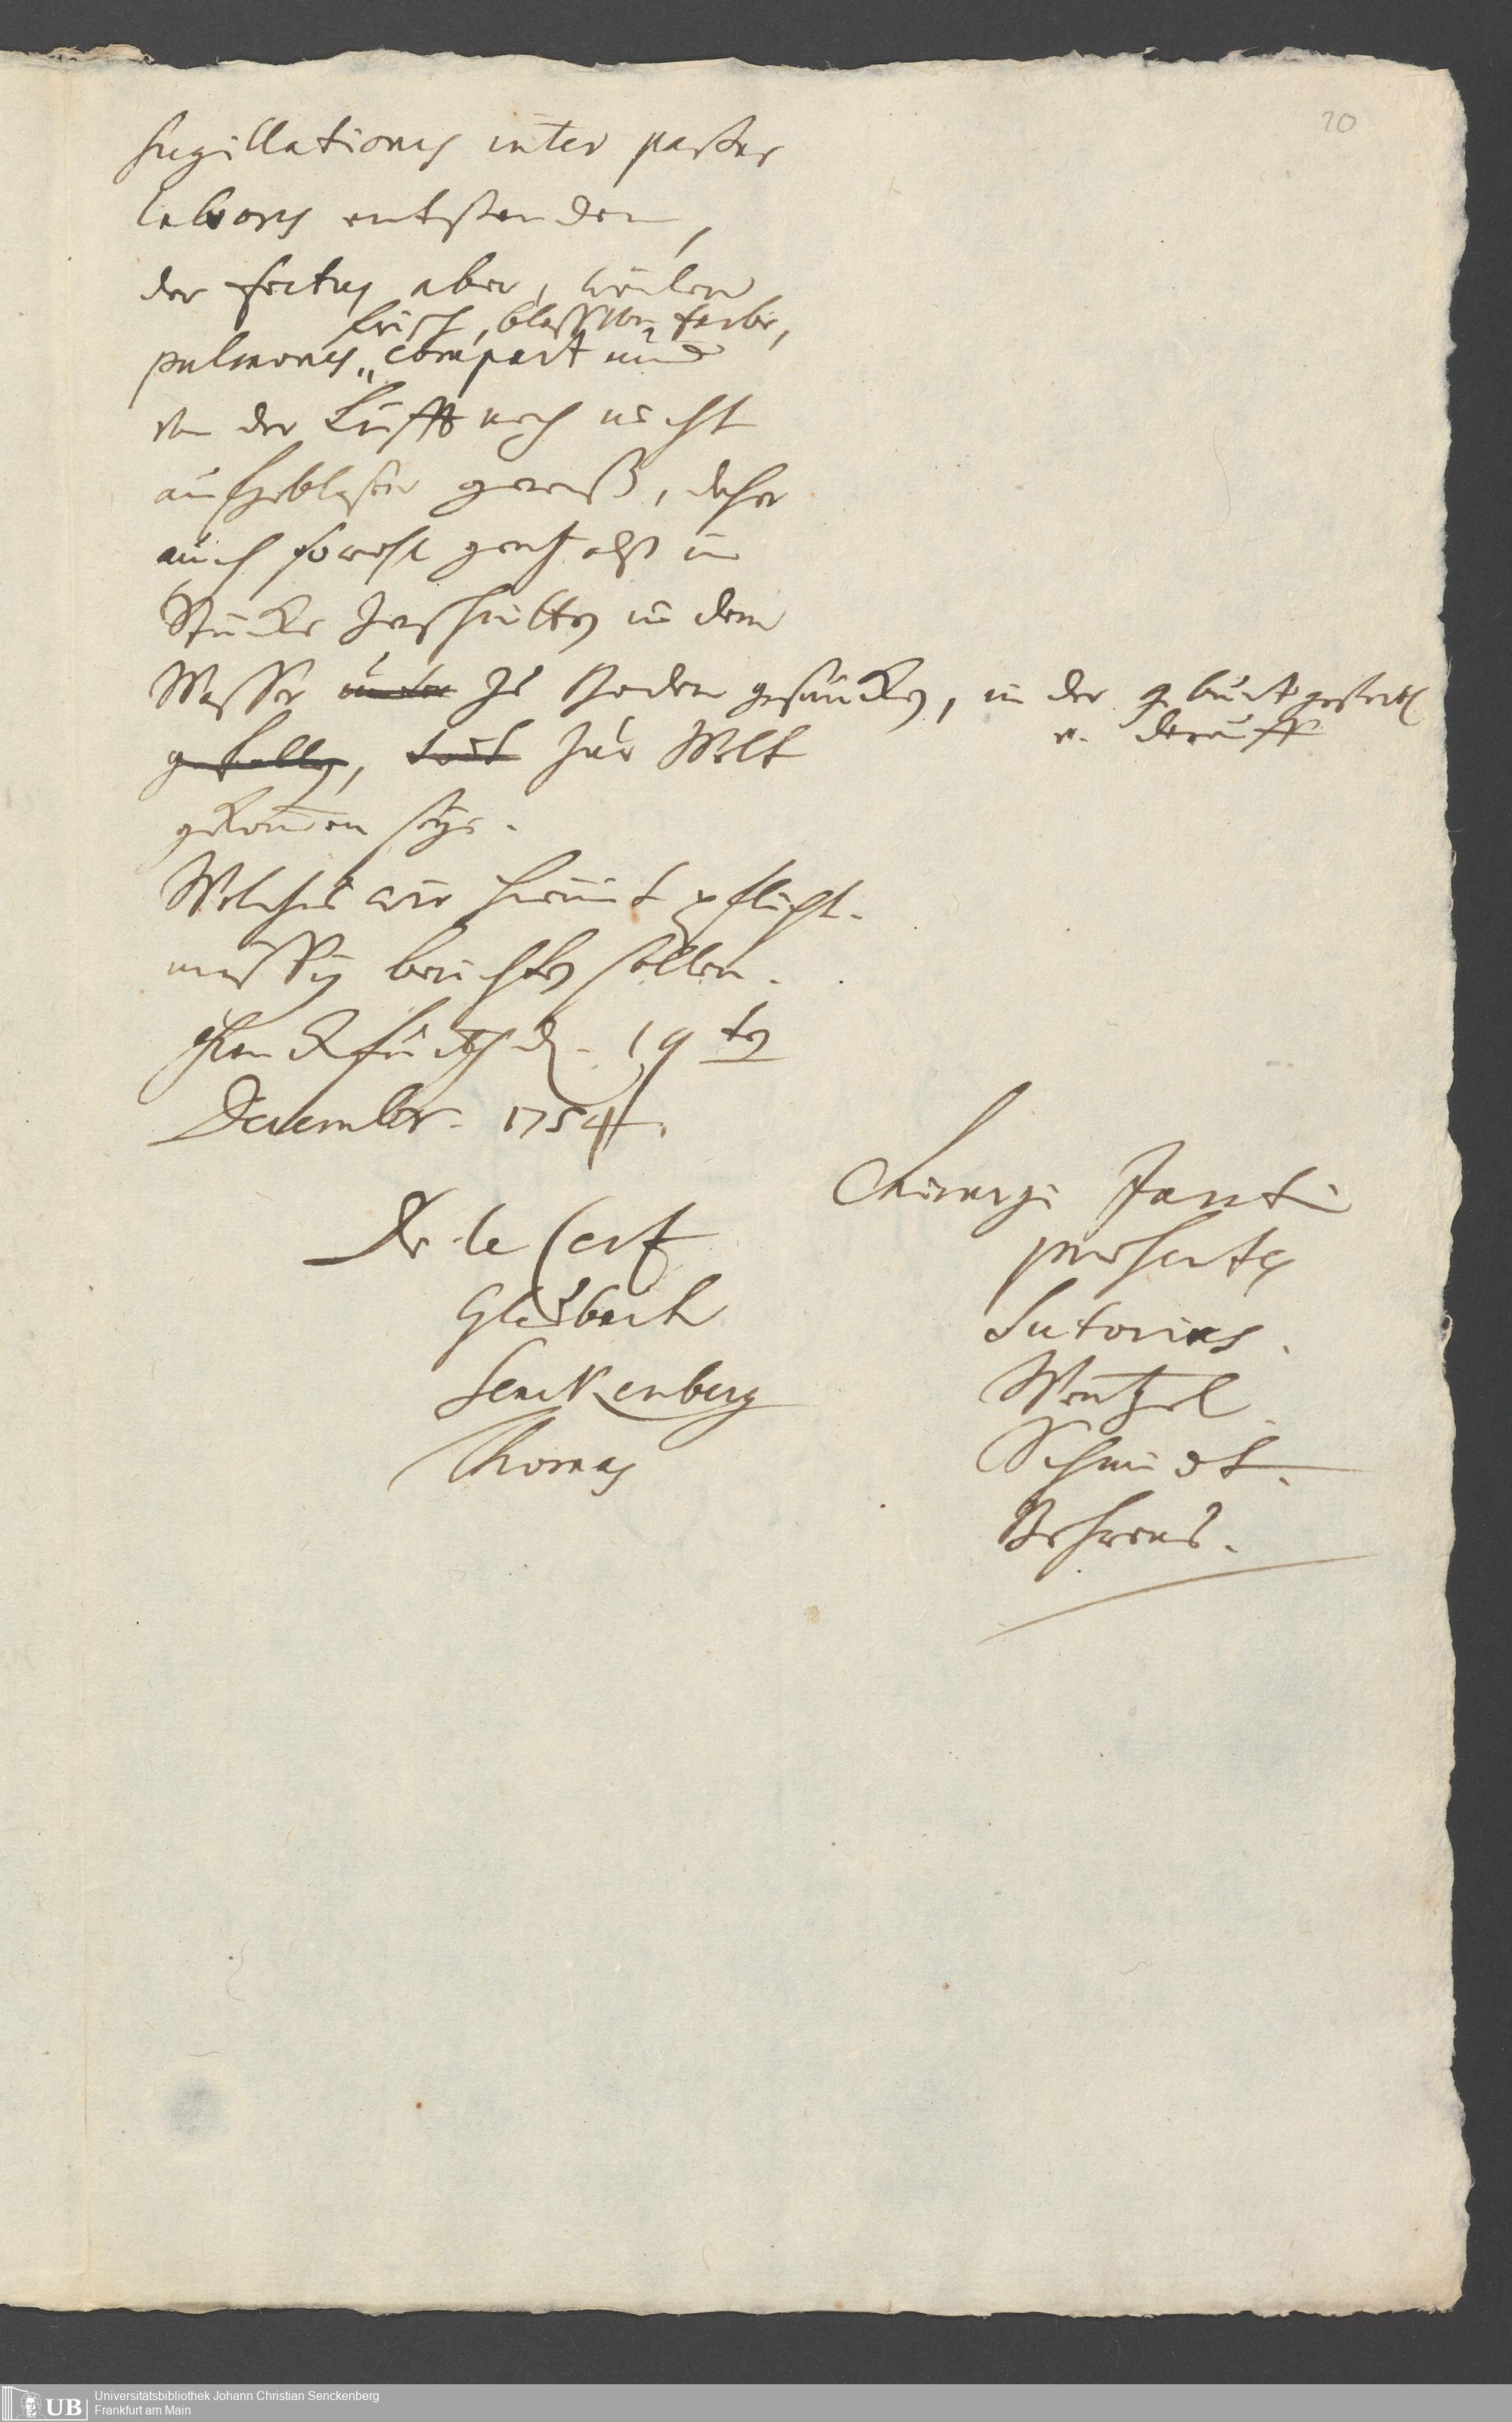 20
sugillationes inter partus
labores entstanden,
der foetus aber, weilen
frisch, blasser farbe,
pulmones compact und
von der Lufft noch nicht
aufgeblasen geweß, daher
auch sowohl gantz alß in
Stücke zerschnitten in dem
Wasser unter zu Boden gesuncken, in der geburt gestorben
gefallen, todt zur Welt
u. darauff
gekommen seye.
Welches wir hiemit pflicht-
mässig berichten sollen.
Franckfurth d. 19ten
December. 1754.
Dr. le Cerf
Gladbach
Senckenberg
Thomas
Chirurgi Jurati
praesentes
Sutorius.
Wentzel
Schmidt.
Behrens.
UB
Universitätsbibliothek Johann Christian Senckenberg
Frankfurt am Main